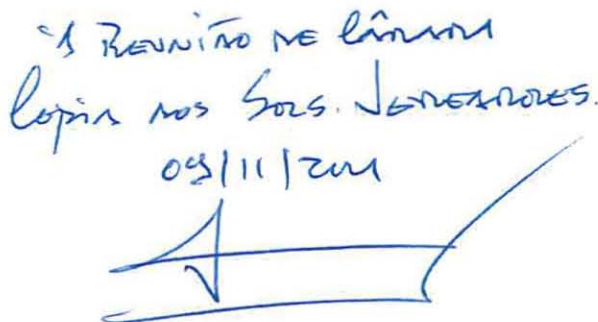 À REUNIÃO DE CÂMARA
Cópia aos Srs. VEREADORES.
09/11/2021